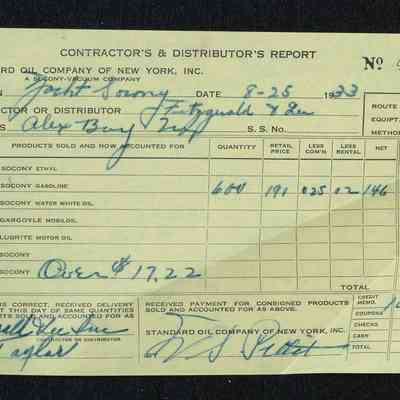 CONTRACTOR'S & DISTRIBUTOR'S REPORT
No
ARD OIL COMPANY OF NEW YORK, INC.
A SOCONY-VACUUM COMPANY
N Yacht Socony DATE 8-25 1933
ROUTE
CTOR OR DISTRIBUTOR Fitzgerald & Lee
EQUIPT.
Alex Bay S. S. No.
METHOD
PRODUCTS SOLD AND NOW ACCOUNTED FOR QUANTITY RETAIL PRICE LESS COM'N LESS RENTAL NET
SOCONY ETHYL
SOCONY GASOLINE 600 191 025 02 146
SOCONY WATER WHITE OIL
GARGOYLE MOBILOIL
LUBRITE MOTOR OIL
SOCONY
SOCONY Over $17.22
TOTAL
IS CORRECT. RECEIVED DELIVERY
OUT THIS DAY OF SAME QUANTITIES
UCTS SOLD AND ACCOUNTED FOR AS
RECEIVED PAYMENT FOR CONSIGNED PRODUCTS
SOLD AND ACCOUNTED FOR AS ABOVE.
CREDIT MEMO.
COUPONS
CHECKS
CASH
TOTAL
CONTRACTOR OR DISTRIBUTOR
STANDARD OIL COMPANY OF NEW YORK, INC.
Taylor